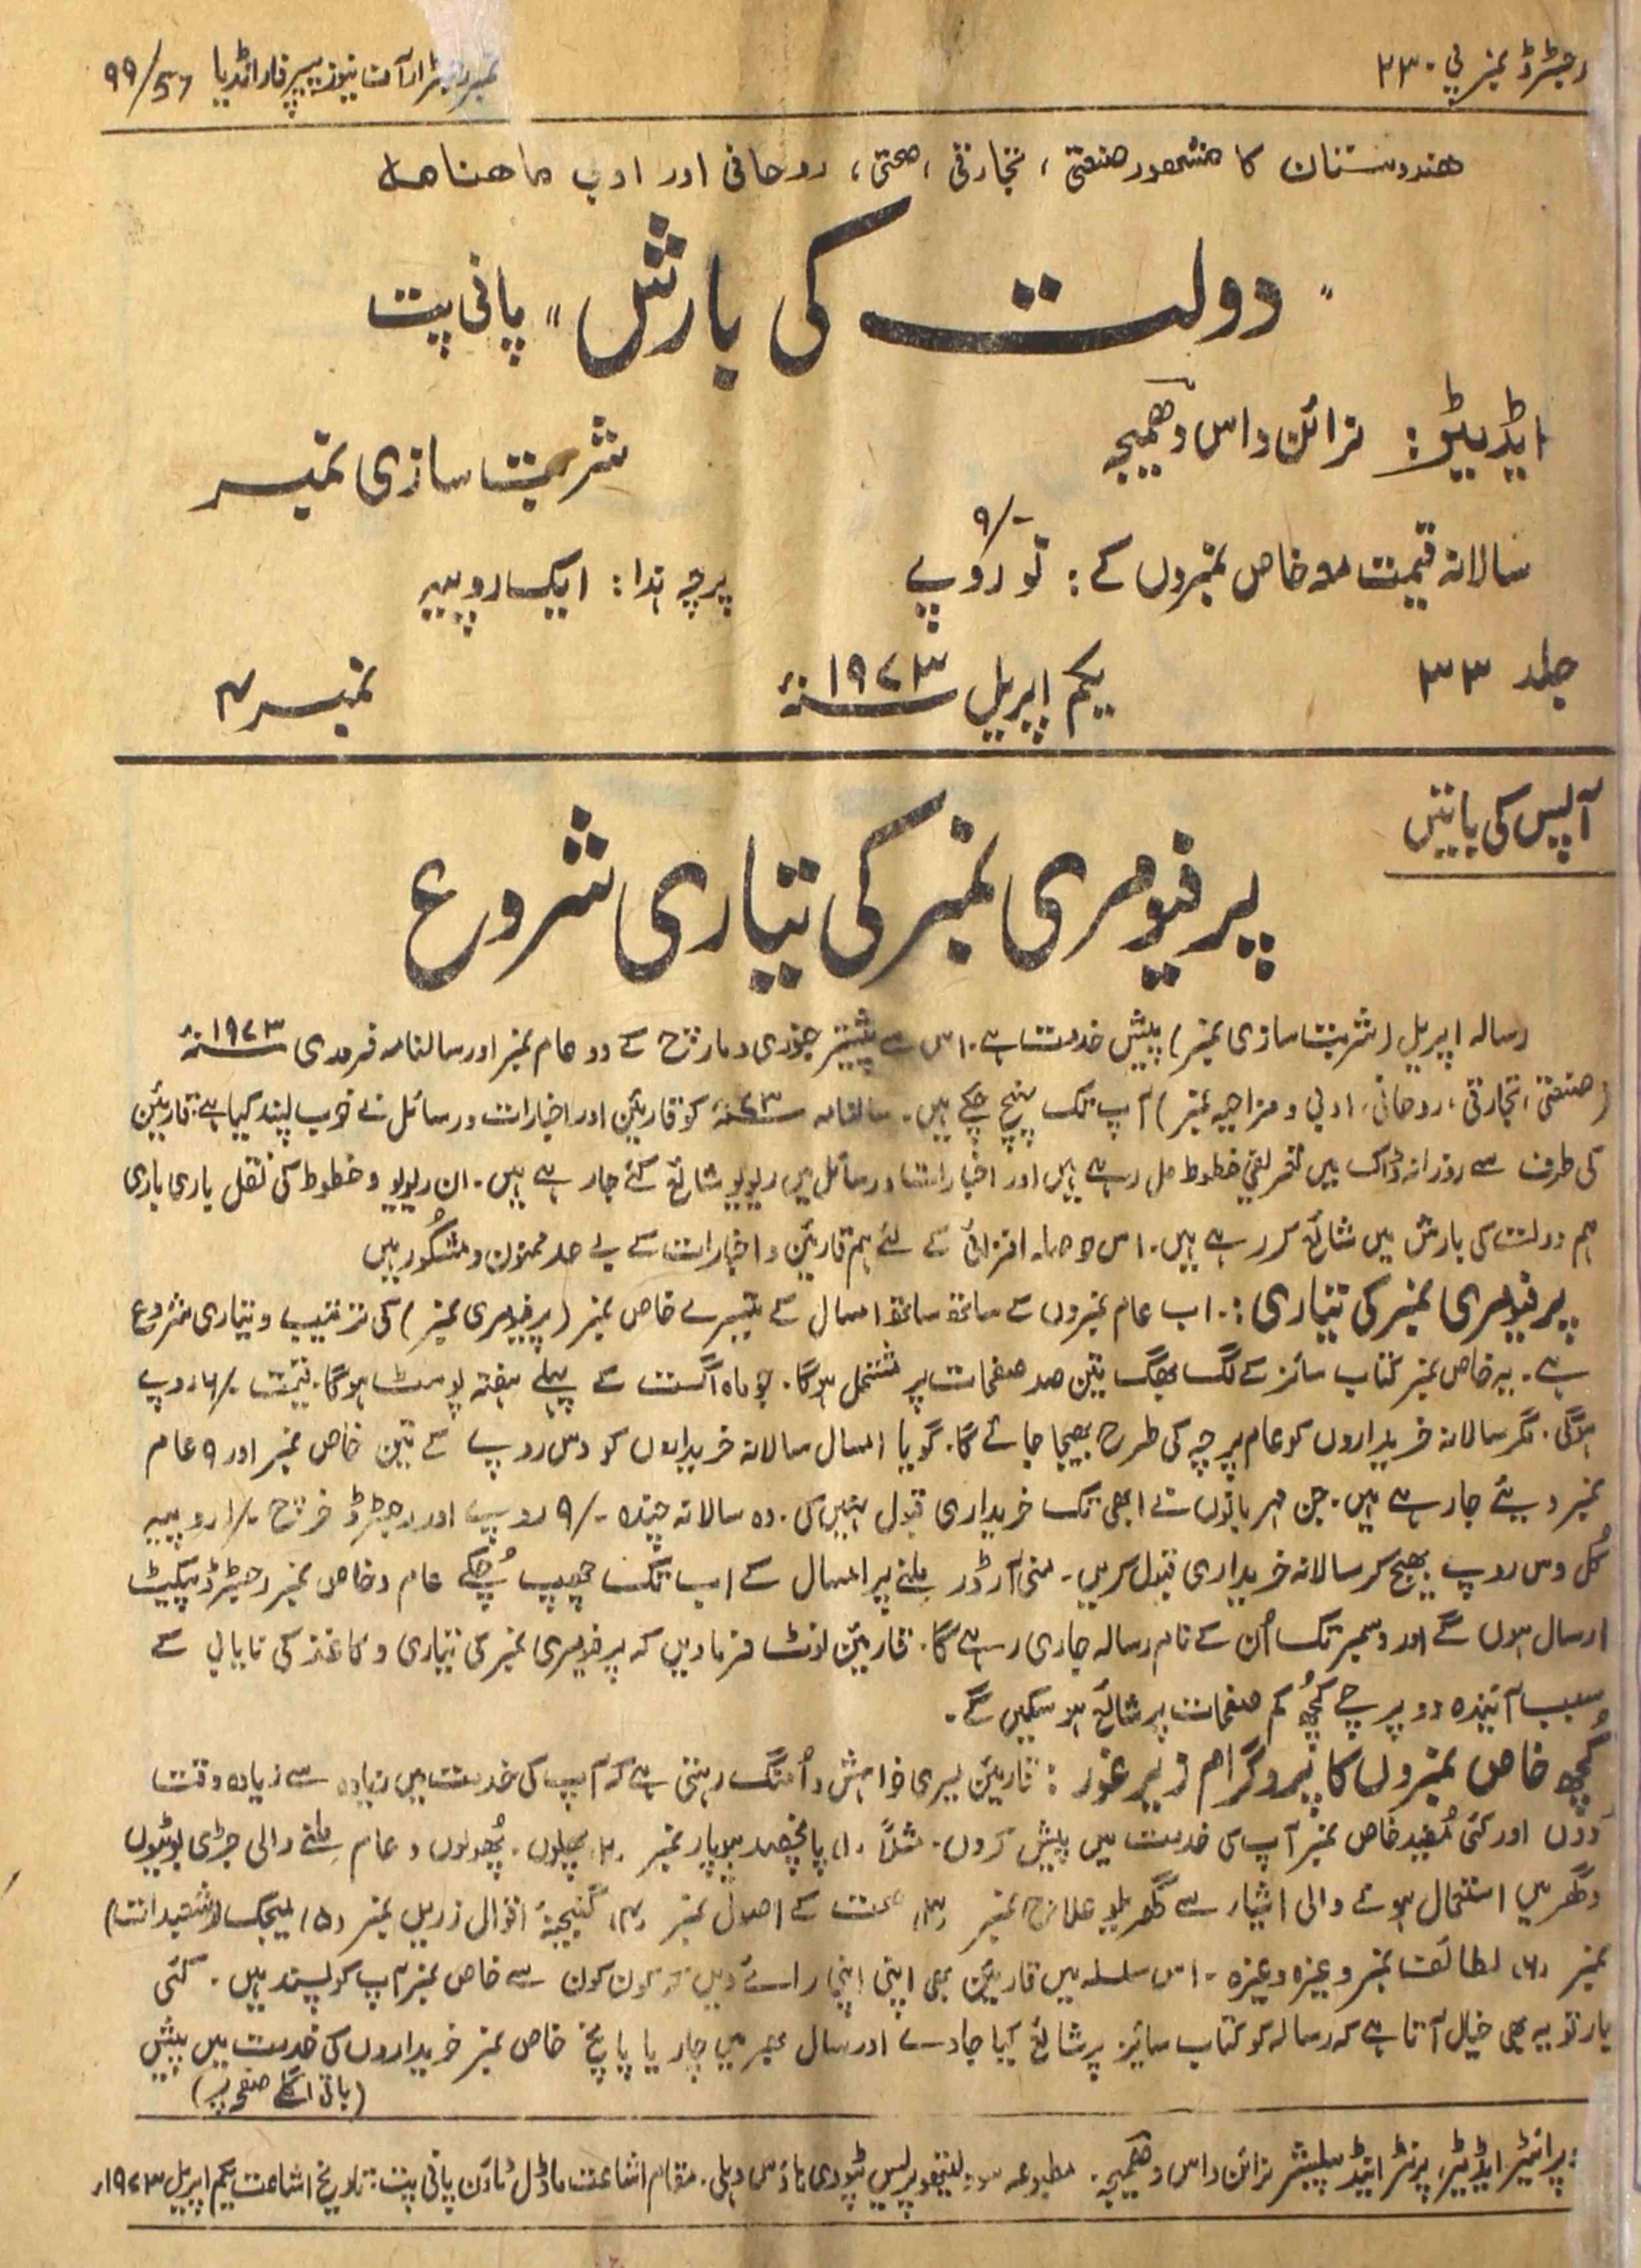 رجسٹرڈ نمبر پی ۲۳۰
نمبر رجسٹرار آف نیوز پیپر فار انڈیا 99/57
ھندوستان کا مشھور صنعتی، تجارتی، صحتی، روحانی اور ادبی ماھنامہ
"دولت کی بارش" پانی پت
ایڈیٹر: نرائن داس دھمیجہ
شربت سازی نمبر
سالانہ قیمت معہ خاص نمبروں کے: نو روپے ۹/-
پرچہ ہذا: ایک روپیہ
جلد ۳۳
یکم اپریل ۱۹۷۳ء
نمبر ۴
آپس کی باتیں
پرفیومری نمبر کی تیاری شروع
رسالہ اپریل (شربت سازی نمبر) پیش خدمت ہے۔ اس سے پیشتر جنوری و مارچ کے دو عام نمبر اور سالنامہ فروری ۱۹۷۳ء
(صنعتی، تجارتی، روحانی، ادبی و مزاحیہ نمبر) آپ تک پہنچ چکے ہیں۔ سالنامہ ۷۳ء کو قارئین اور اخبارات و رسائل نے خوب پسند کیا ہے۔ قارئین
کی طرف سے روزانہ ڈاک میں تعریفی خطوط مل رہے ہیں اور اخبارات و رسائل میں ریویو شائع کئے جا رہے ہیں۔ ان ریویو و خطوط کی نقل باری باری
ہم دولت کی بارش میں شائع کر رہے ہیں۔ اس حوصلہ افزائی کے لئے ہم قارئین و اخبارات کے بے حد ممنون و مشکُور ہیں
پرفیومری نمبر کی تیاری:۔ اب عام نمبروں کے ساتھ ساتھ امسال کے تیسرے خاص نمبر (پرفیومری نمبر) کی ترتیب و تیاری شروع
ہے۔ یہ خاص نمبر کتاب سائز کے لگ بھگ تین صد صفحات پر مشتمل ہوگا۔ جو ماہ اگست کے پہلے ہفتہ پوسٹ ہوگا۔ قیمت ‎/- روپے
ہوگی۔ مگر سالانہ خریداروں کو عام پرچہ کی طرح بھیجا جائے گا۔ گویا امسال سالانہ خریداروں کو دس روپے کے تین خاص نمبر اور ۹ عام
نمبر دیئے جا رہے ہیں۔ جن مہربانوں نے ابھی تک خریداری قبول نہیں کی۔ وہ سالانہ چندہ ۹/- روپے اور رجسٹرڈ خرچ ۱/- روپیہ
کُل دس روپے بھیج کر سالانہ خریداری قبول کریں۔ منی آرڈر ملنے پر امسال کے اب تک چھپ چُکے عام و خاص نمبر رجسٹرڈ پیکیٹ
ارسال ہوں گے اور دسمبر تک اُن کے نام رسالہ جاری رہے گا۔ قارئین نوٹ فرمادیں کہ پرفیومری نمبر کی تیاری و کاغذ کی نایابی کے
سبب آئیندہ دو پرچے کچھُ کم صفحات پر شائع ہو سکیں گے۔
کُچھ خاص نمبروں کا پروگرام زیر غور: قارئین میری خواہش و اُمنگ رہتی ہے کہ آپ کی خدمت میں زیادہ سے زیادہ وقت
دُوں اور کئی مُفید خاص نمبر آپ کی خدمت میں پیش کروں۔ مثلاً (۱) پانچصد بیوپار نمبر (۲) پھلوں۔ پھُولوں و عام ملنے والی جڑی بوٹیوں
و گھر میں استعمال ہونے والی اشیاء سے گھریلو علاج نمبر (۳) صحت کے اصول نمبر (۴) گنجینۂ اقوال زریں نمبر (۵) میجک (شعبدات)
نمبر (۶) لطائف نمبر وغیرہ وغیرہ۔ اس سلسلہ میں قارئین بھی اپنی اپنی رائے دیں کہ کون کون سے خاص نمبر آپ کو پسند ہیں۔ کئی
بار تو یہ بھی خیال آتا ہے کہ رسالہ کو کتاب سائیز پر شائع کیا جاوے اور سال بھر میں چار یا پانچ خاص نمبر خریداروں کی خدمت میں پیش
(باقی اگلے صفحہ پر)
پرائیٹر ایڈیٹر، پرنٹر اینڈ پبلیشر نرائن داس دھمیجہ۔ مطبوعہ لیتھو پریس پٹودی ہاؤس دہلی۔ مقام اشاعت ماڈل ٹاؤن پانی پت: تاریخ اشاعت یکم اپریل ۱۹۷۳ء